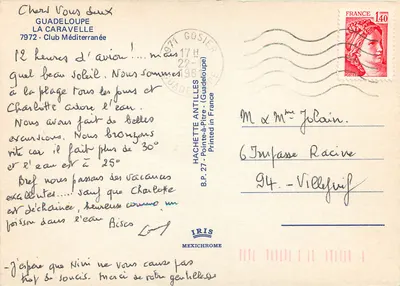 Chers Vous deux
GUADELOUPE
LA CARAVELLE
7972 - Club Méditerranée
12 heures d'avion!.... mais
quel beau soleil. Nous sommes
à la plage tous les jours et
Charlotte adore l'eau.
Nous avons fait de belles
excursions. Nous bronzons
vite car il fait plus de 30°
et l'eau est à 25°
Bref nous passons des vacances
excellentes..... sauf que Charlotte
est déchaînée, heureuse comme un
poisson dans l'eau
Bises
j'espère que Nini ne vous cause pas
trop de soucis. Merci de votre gentillesse
HACHETTE ANTILLES
B.P. 27 - Pointe-à-Pitre - (Guadeloupe)
Printed in France
IRIS
MEXICHROME
971 GOSIER
17H
22-
FRANCE
1,40
M & Mme Jolain.
6 Impasse Racine
94. - Villejuif